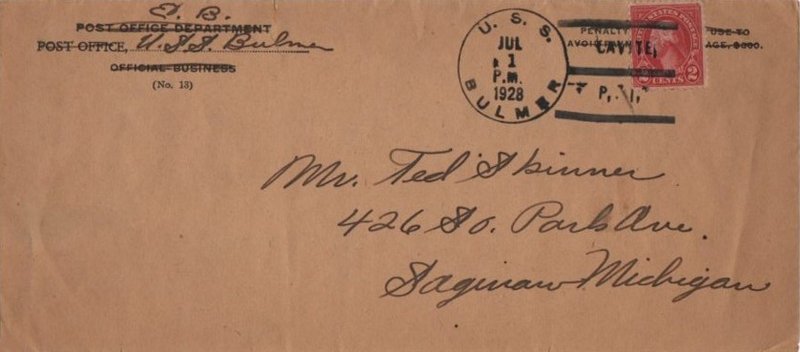 E. B.
POST OFFICE DEPARTMENT
POST OFFICE, U.S.S. Bulmer
OFFICIAL BUSINESS
(No. 13)
U. S. S.
JUL
1
P.M.
1928
BULMER
PENALTY USE TO
AVOID AGE, $300.
CAVITE,
P. I.
STATES POSTAGE
2 CENTS 2
Mr. Ted Skinner
426 So. Park Ave.
Saginaw Michigan